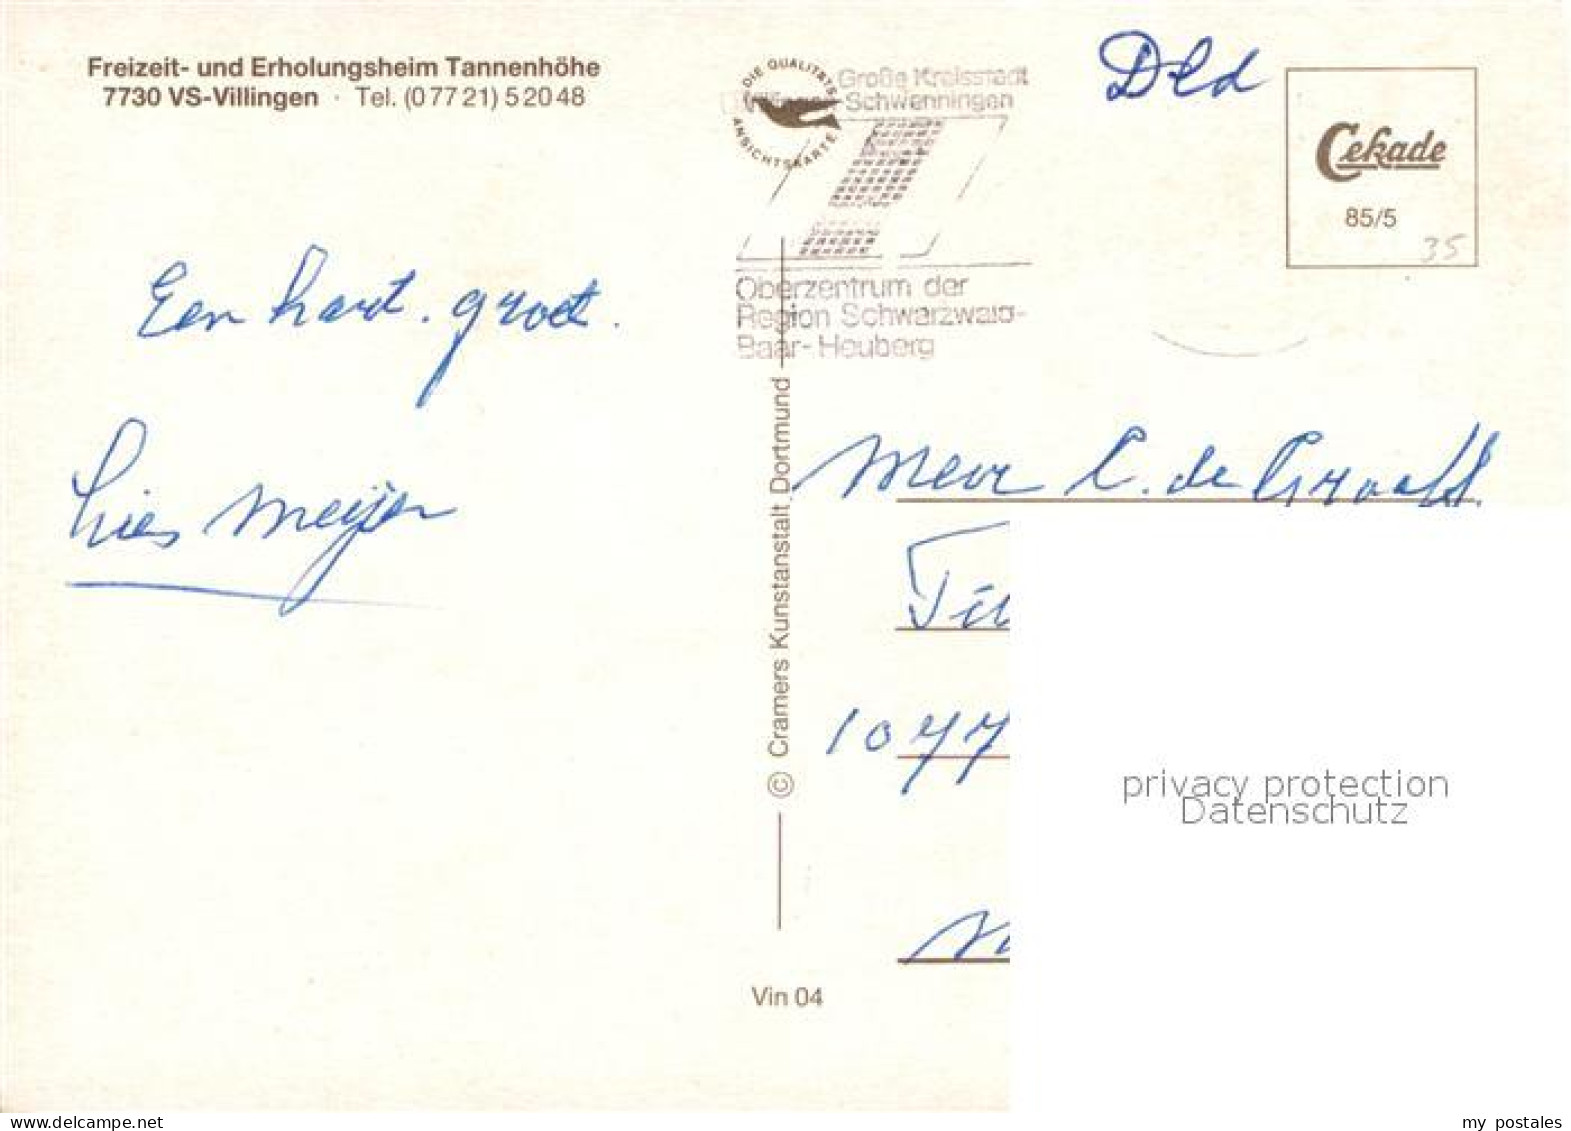 Freizeit- und Erholungsheim Tannenhöhe
7730 VS-Villingen · Tel. (0 77 21) 5 20 48
DIE QUALITÄTS
ANSICHTSKARTE
Große Kreisstadt
-Schwenningen
Oberzentrum der
Region Schwarzwald-
Baar-Heuberg
Dld
Cekade
85/5
35
Een hart. groet.
Lies Meijer
© Cramers Kunstanstalt, Dortmund
Mevr C. de Graaff.
1077
privacy protection
Datenschutz
Vin 04
my postales